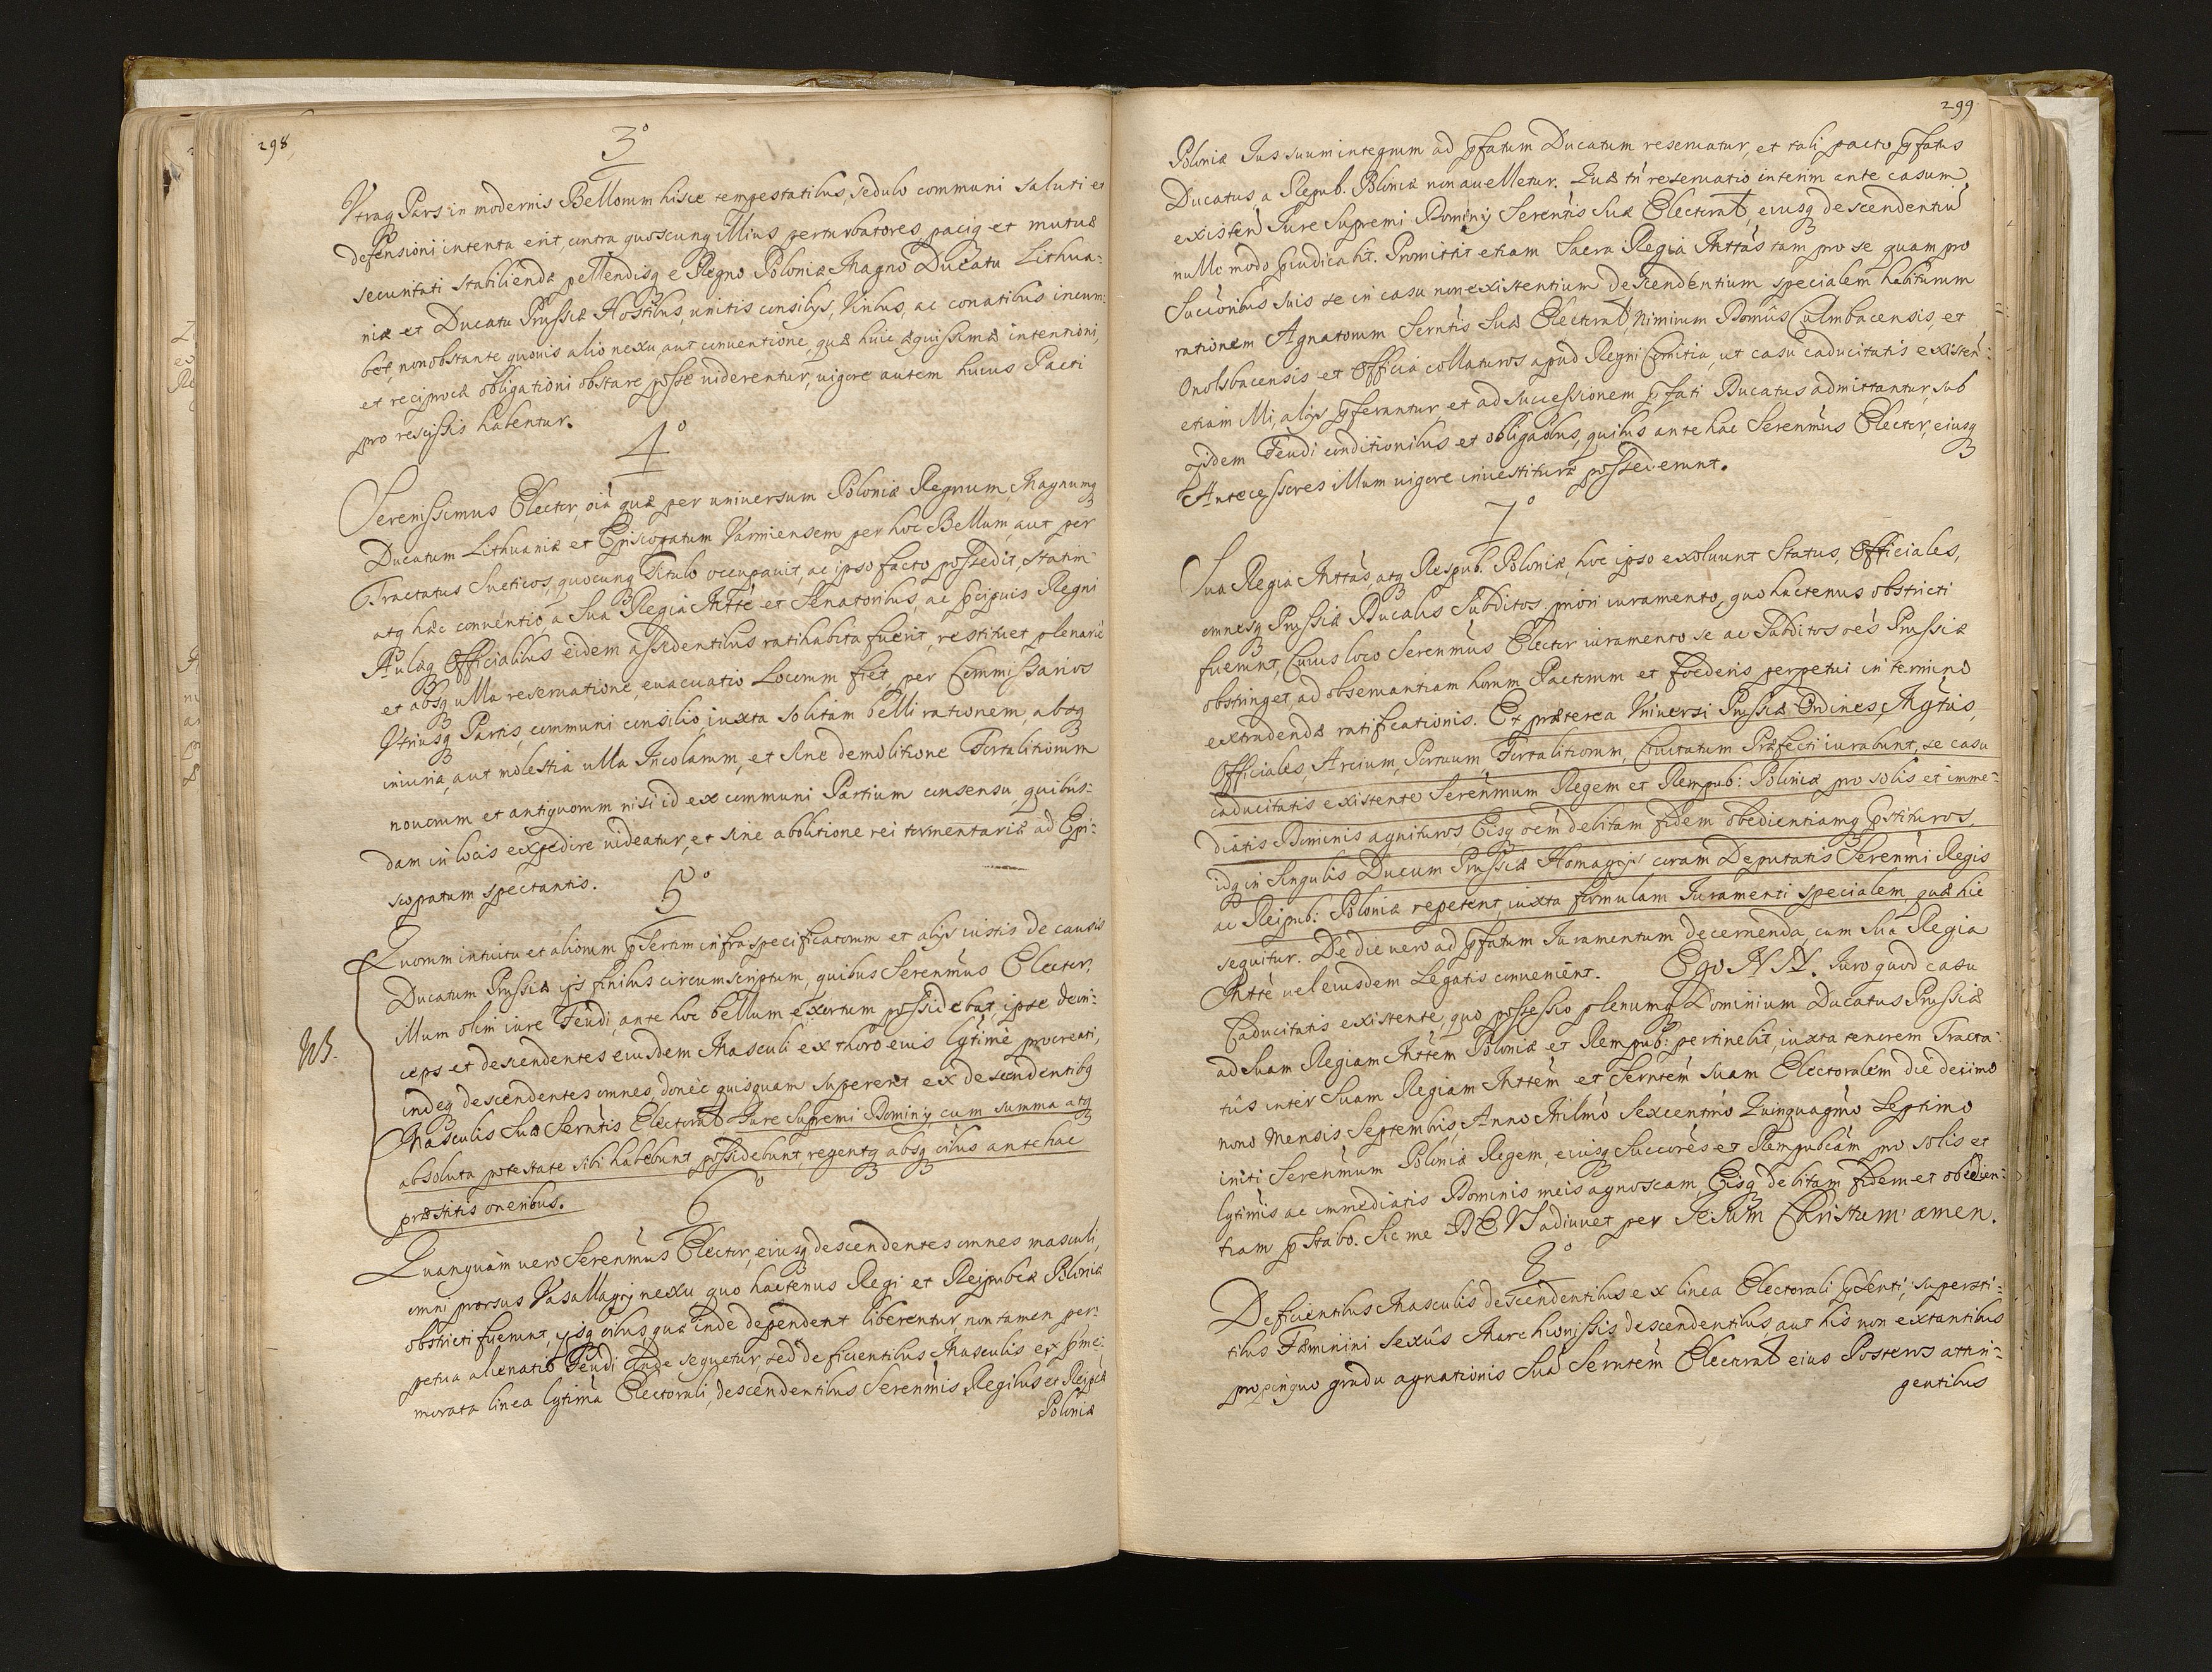 298
3°
Vtraq Pars in modernis Bellorum hisce tempestatibus, sedulo communi saluti et
defensioni intenta erit, contra quoscunq illius perturbatores, paciq et mutuæ
securitati stabiliendæ pellendisq e Regno Poloniæ Magno Ducatu Lithua-
niæ et Ducatu Prussiæ Hostibus, unitis consilijs, Viribus, ac conatibus incum-
bet, nonobstante quouis alio nexu, aut conuentione, quæ huic æquissimæ intentioni,
et reciprocæ obligationi obstare posse uiderentur, uigore autem huius Pacti
pro rescissis habentur.
4°
Serenissimus Elector, oia quæ per uniuersum Poloniæ Regnum, Magnumq
Ducatum Lithuaniæ et Episcopatum Varmiensem per hoc Bellum, aut per
Tractatus Sueticos, quocunq Titulo occupauit, ac ipso facto possedit, statim
atq hæc conuentio a Sua Regia Mtte et Senatoribus, ac pcipuis Regni
Aulaq Officialibus eidem assidentibus ratihabita fuerit, restituet plenarie
et absq ulla reseruatione, euacuatio Locorum fiet, per Commissarios
Vtriusq Partis, communi consilio iuxta solitam belli rationem, absq
iniuria, aut molestia ulla Incolarum, et sine demolitione Fortalitiorum
nouorum et antiquorum nisi id ex communi Partium consensu, quibus-
dam in locis expedire uideatur, et sine abolitione rei tormentariæ ad Epi-
scopatum spectantis.
5°
Quorum intuitu et aliorum psertim infraspecificatorum et alijs iustis de causis
Ducatum Prussiæ ijs finibus circumscriptum, quibus Serenmus Elector,
illum olim iure Feudi, ante hoc bellum exortum possidebat, ipse dein-
NB. ceps et descendentes eiusdem Masculi ex thoro eius lgtime procreati,
indeq descendentes omnes, donec quisquam supererit ex descendentibq
Masculis Suæ Serntis Electoral Jure Supremi Dominij, cum summa atq
absoluta potestate sibi habebunt possidebunt, regentq absq oibus antehac
præstitis oneribus.
6°
Quanquam uero Serenmus Elector, eiusq descendentes omnes masculi,
omni prorsus Vasallagij nexu quo hactenus Regi et Reipubcæ Poloniæ
obstricti fuerunt, ijsq oibus quæ inde dependent liberentur, non tamen per-
petua alienatio Feudi inde sequetur, sed deficientibus Masculis ex pme-
morata linea lgtima Electorali, descendentibus Serenmis Regibus et Reipcæ
Poloniæ
299
Poloniæ Jus suum integrum ad pfatum Ducatum reseruatur, et tali pacto pfatus
Ducatus, a Repub. Poloniæ non auelletur. Quæ tn reseruatio interim ante casum
existen Jure Supremi Dominij Serentis Suæ Electoral, eiusq descendentiu
nullo modo pjudicabit. Promittit etiam Sacra Regia Mttas tam pro se quam pro
Succoribus suis se in casu nonexistentium descendentium specialem habiturum
rationem Agnatorum Serntis Suæ Electoral, Nimirum Domus Culmbacensis, et
Onolsbacensis et Officia collaturos apud Regni Comitia, ut casu caducitatis existen:
etiam illi, alijs pferantur, et ad successionem pfati Ducatus admittantur, sub
ijsdem Feudi conditionibus et obligaoibus, quibus antehac Serenmus Elector, eiusq
Antecessores illum uigore inuestituræ possederunt.
7°
Sua Regia Mttas, atq Respub. Poloniæ, hoc ipso exoluunt Status, Officiales,
omnesq Prussiæ Ducalis Subditos, priori iuramento, quo hactenus obstricti
fuerunt, Cuius loco Serenmus Elector iuramento se ac Subditos oes Prussiæ
obstringet, ad obseruantiam horum Pactorum et foederis perpetui in termino
extradendæ ratificationis. Et præterea Vniuersi Prussiæ Ordines, Mgtus,
Officiales, Arcium, Portuum, Fortalitiorum, Ciuitatum Præfecti iurabunt, se casu
caducitatis existente Serenmum Regem et Rempub: Poloniæ pro solis et imme-
diatis Dominis agnituros Eisq oem debitam fidem obedientiamq pstituros,
idq in singulis Ducum Prussiæ Homagijs coram Deputatis Serenmi Regis
ac Reipub: Poloniæ repetent, iuxta formulam Juramenti specialem, quæ hic
sequitur. De die uero ad pfatum Juramentum decernenda, cum Sua Regia
Mtte uel eiusdem Legatis conuenient. Ego N N. Juro quod casu
Caducitatis existente, quo possessio plenumq Dominium Ducatus Prussiæ
ad Suam Regiam Mttem Poloniæ et Rempub: pertinebit, iuxta tenorem Tracta-
tus inter Suam Regiam Mttem et Serntem Suam Electoralem die decimo
nono Mensis Septembris, Anno Milmo Sexcentmo Quinquagmo Septimo
initi Serenmum Poloniæ Regem, eiusq Succores et Rempubcam pro solis et
lgtimis ac immediatis Dominis meis agnoscam, Eisq debitam fidem et obedien-
tiam pstabo. Sic me DEVS adiuuet per JESUM Christum amen.
8°
Deficientibus Masculis descendentibus ex linea Electorali psenti, supersti-
tibus Fæminini Sexus Marchionissis descendentibus aut his non extantibus
propinquo gradu agnationis Sua Serntem Electoral eius Posteros attin-
gentibus